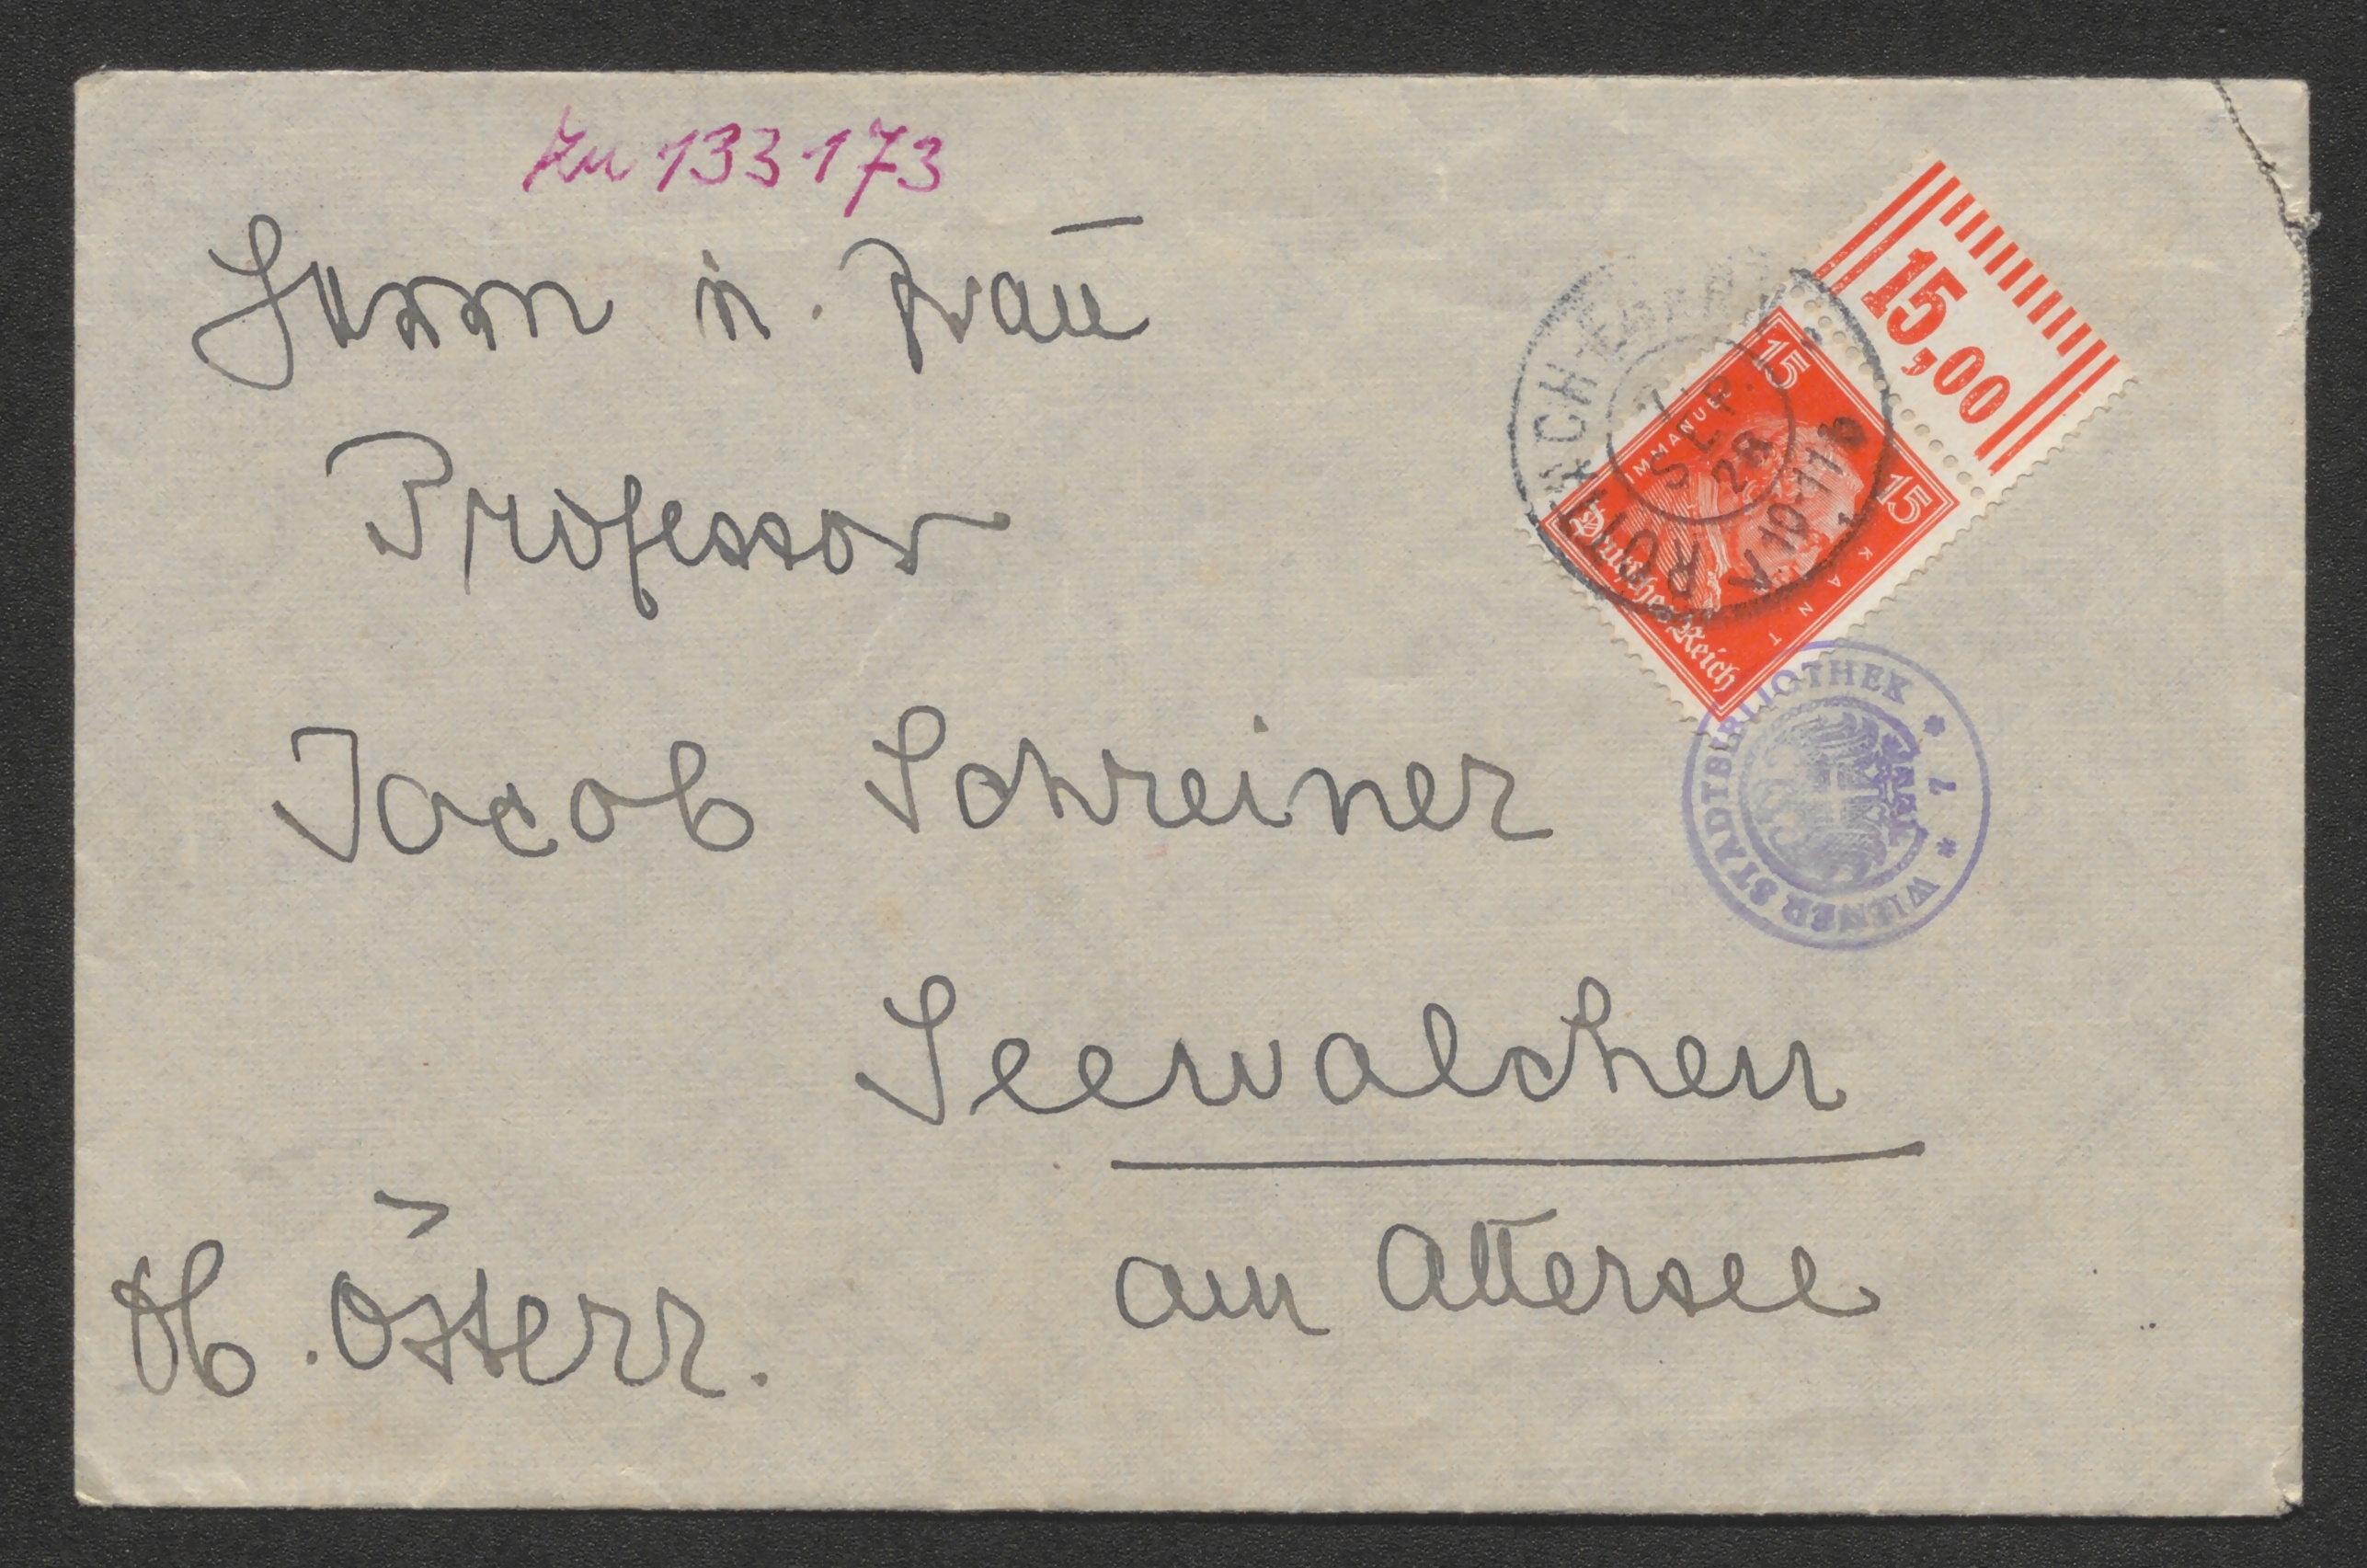 Zu 133173
Herrn u. Frau
Professor
Jacob Schreiner
Seewalchen
am Attersee
Ob. Österr.
15,00
15
15
IMMANUEL KANT
Deutsches Reich
ROTTACH-EGERN
SEP. 28
10-11
WIENER STADTBIBLIOTHEK
* 7 *